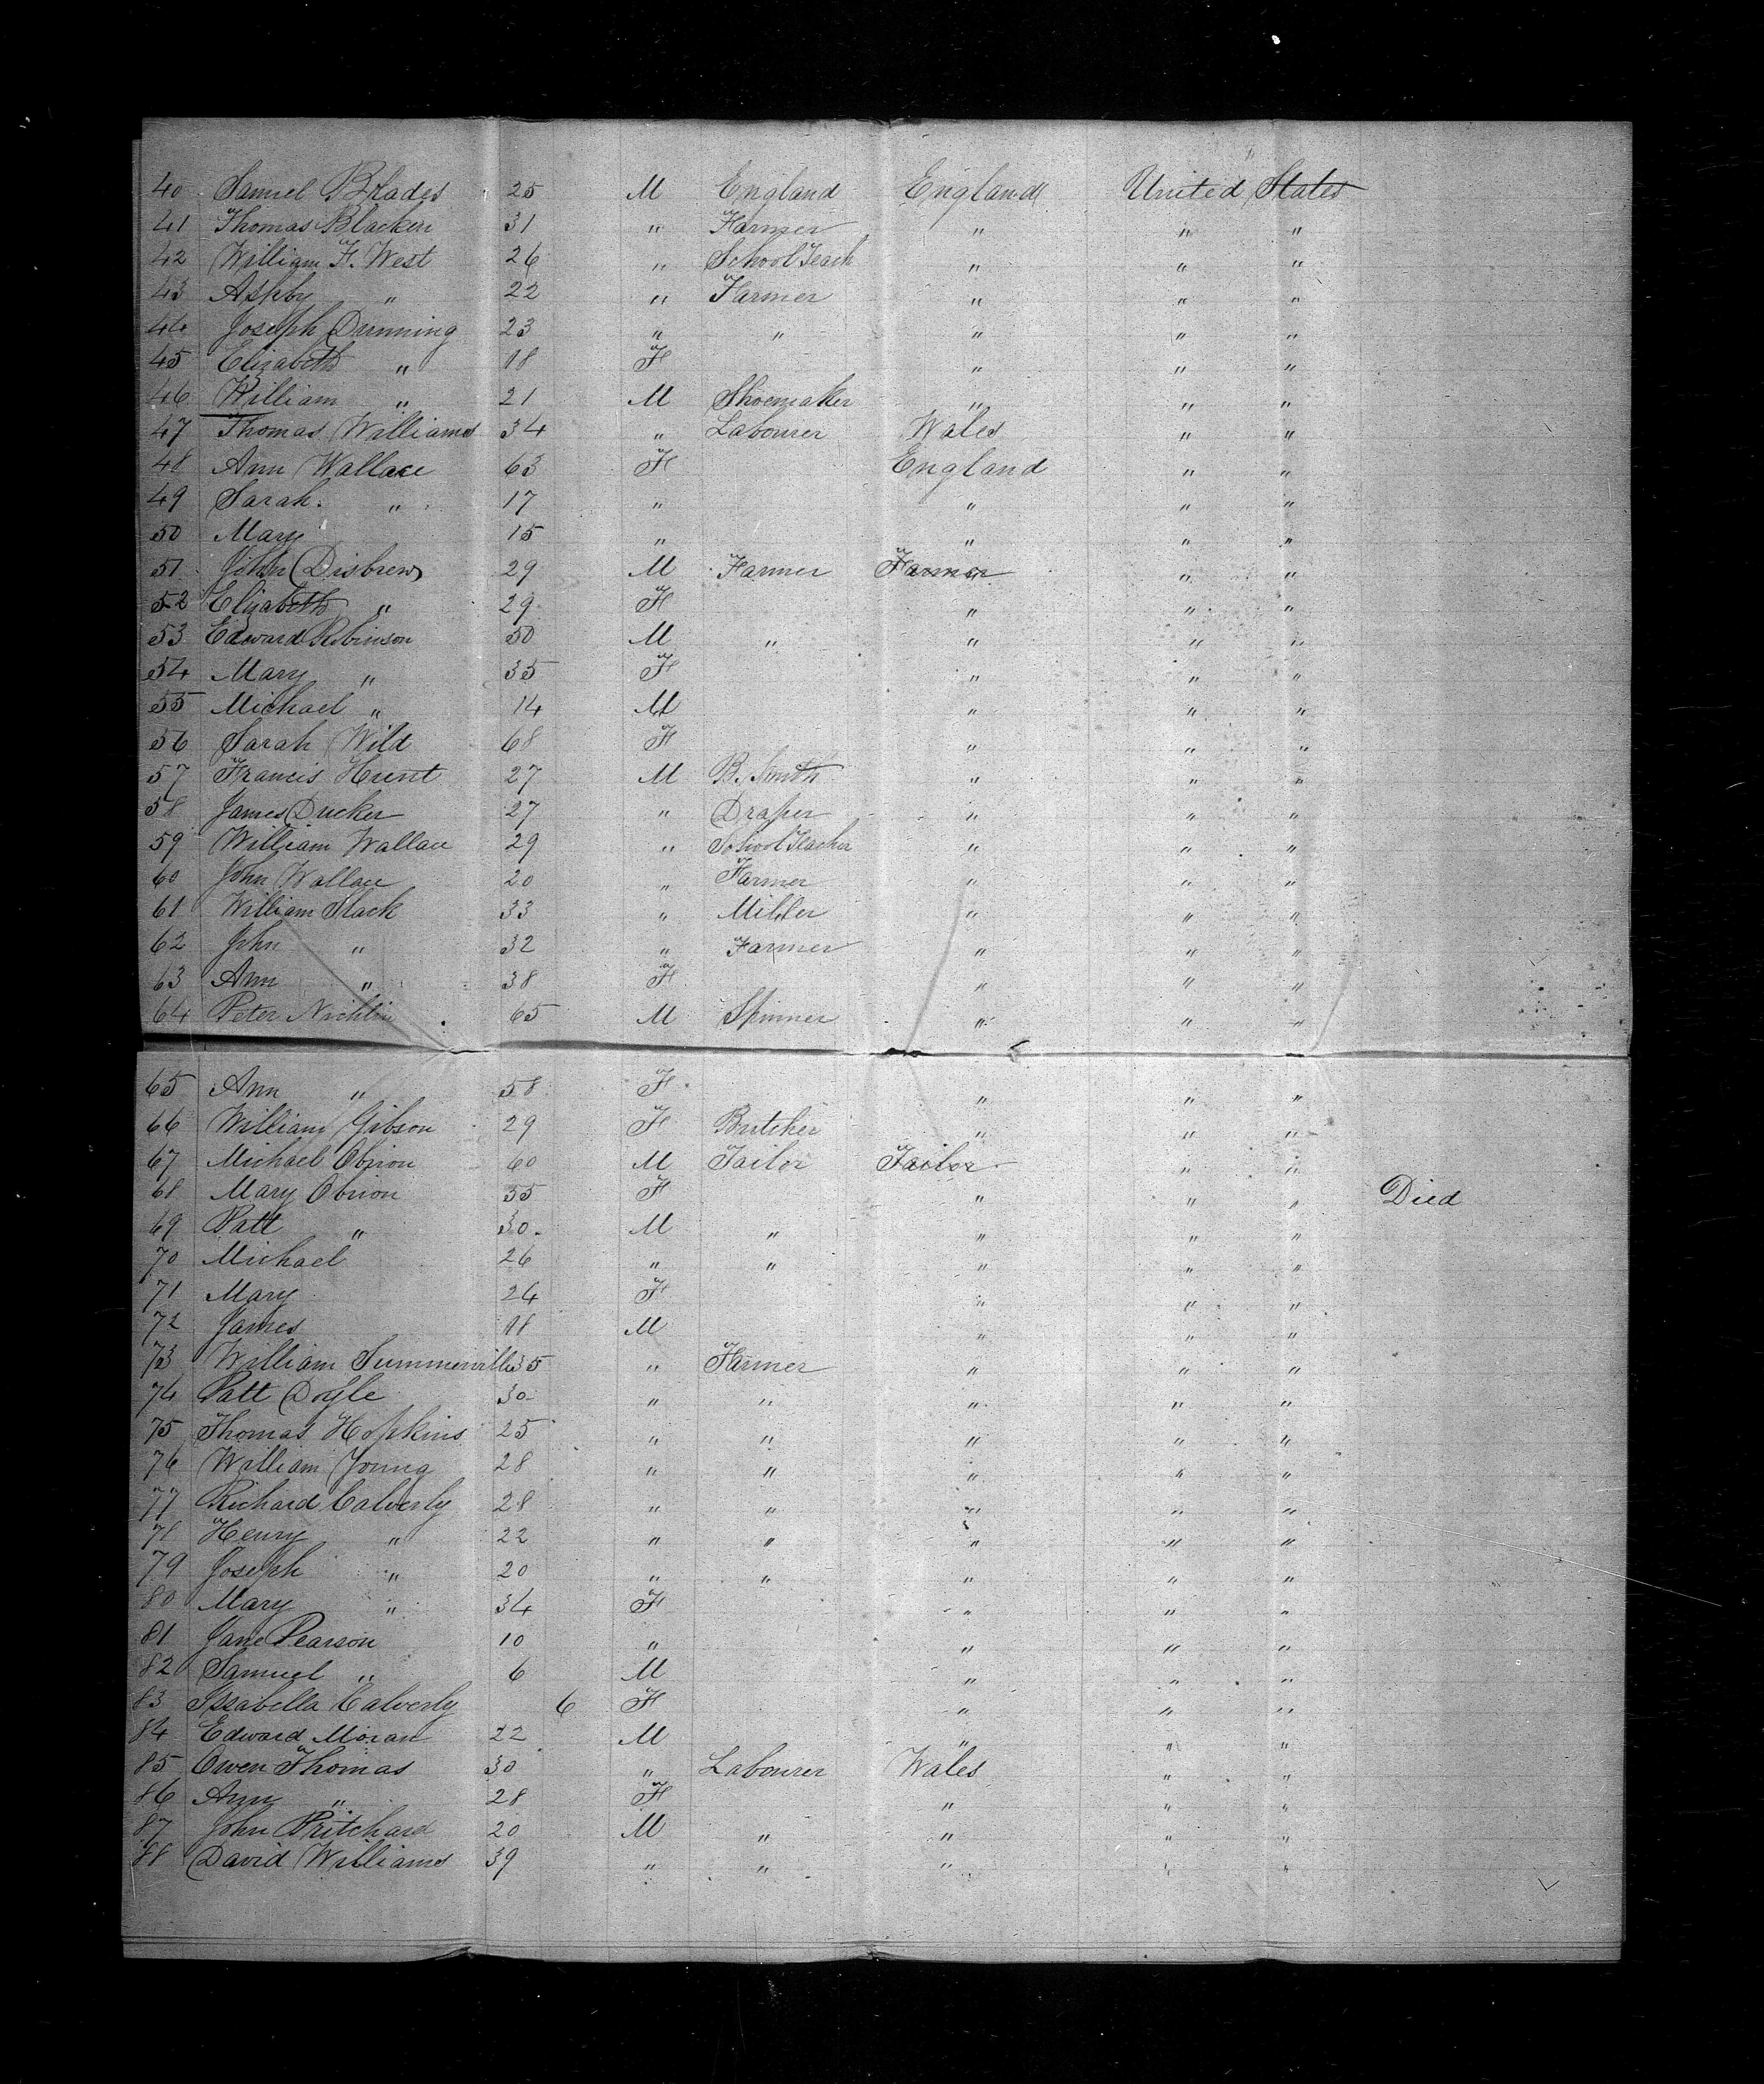 40 Samuel Blades 25 M England England United States
41 Thomas Blacken 31 " Farmer " " "
42 William F. West 26 " School Teach " " "
43 Ashby " 22 " Farmer " " "
44 Joseph Dunning 23 " " " " "
45 Elizabeth " 18 F " " "
46 William " 21 M Shoemaker " " "
47 Thomas Williams 34 " Labourer Wales " "
48 Ann Wallace 63 F England " "
49 Sarah " 17 " " " "
50 Mary 15 " " " "
51 John Disbrew 29 M Farmer Farmer " "
52 Elizabeth " 29 F " " "
53 Edward Robinson 50 M " " " "
54 Mary " 35 F " " "
55 Michael " 14 M " " "
56 Sarah Wild 68 F " " "
57 Francis Hunt 27 M B. Smith " " "
58 James Ducker 27 " Draper " " "
59 William Wallace 29 " School Teacher " " "
60 John Wallace 20 " Farmer " " "
61 William Slack 33 " Miller " " "
62 John " 32 " Farmer " " "
63 Ann " 38 F " " "
64 Peter Nichlin 65 M Spinner " " "
65 Ann " 58 F " " "
66 William Gibson 29 F Butcher " " "
67 Michael Obrion 60 M Tailor Tailor " "
68 Mary Obrion 55 F " " " Died
69 Patt " 30 M " " " "
70 Michael 26 " " " " "
71 Mary 24 F " " "
72 James 18 M " " "
73 William Summerville 35 " Farmer " " "
74 Patt Doyle 30 " " " " "
75 Thomas Hopkins 25 " " " " "
76 William Young 28 " " " " "
77 Richard Calverly 28 " " " " "
78 Henry " 22 " " " " "
79 Joseph " 20 " " " " "
80 Mary " 34 F " " "
81 Jane Pearson 10 " " " "
82 Samuel " 6 M " " "
83 Issabella Calverly 6 F " " "
84 Edward Moran 22 M " " "
85 Owen Thomas 30 " Labourer Wales " "
86 Ann " 28 F " " "
87 John Pritchard 20 M " " " "
88 David Williams 39 " " " " "